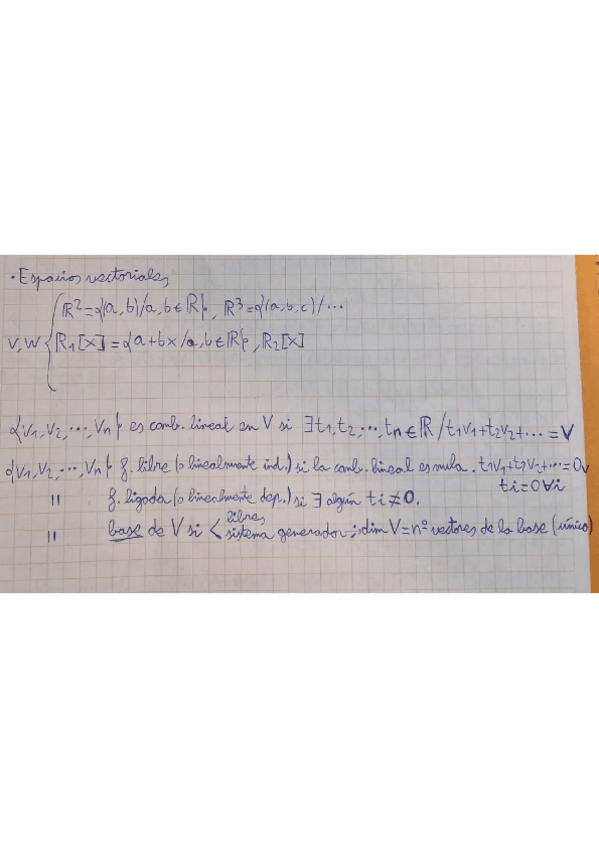 · Espacios vectoriales
V, W { R² = {(a, b) / a, b ∈ R}, R³ = {(a, b, c) / ...
R₁[x] = {a + bx / a, b ∈ R}, R₂[x]
{v₁, v₂, ..., vₙ} es comb. lineal en V si ∃ t₁, t₂, ..., tₙ ∈ R / t₁v₁ + t₂v₂ + ... = V
{v₁, v₂, ..., vₙ} f. libre (o linealmente ind.) si la comb. lineal es nula. t₁v₁ + t₂v₂ + ... = 0v
ti = 0 ∀i
" f. ligada (o linealmente dep.) si ∃ algún ti ≠ 0.
" base de V si < libres
sistema generador ; dim V = nº vectores de la base (único)